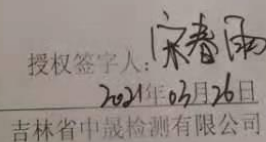 授权签字人：宋春雨
2021年03月26日
吉林省中晟检测有限公司